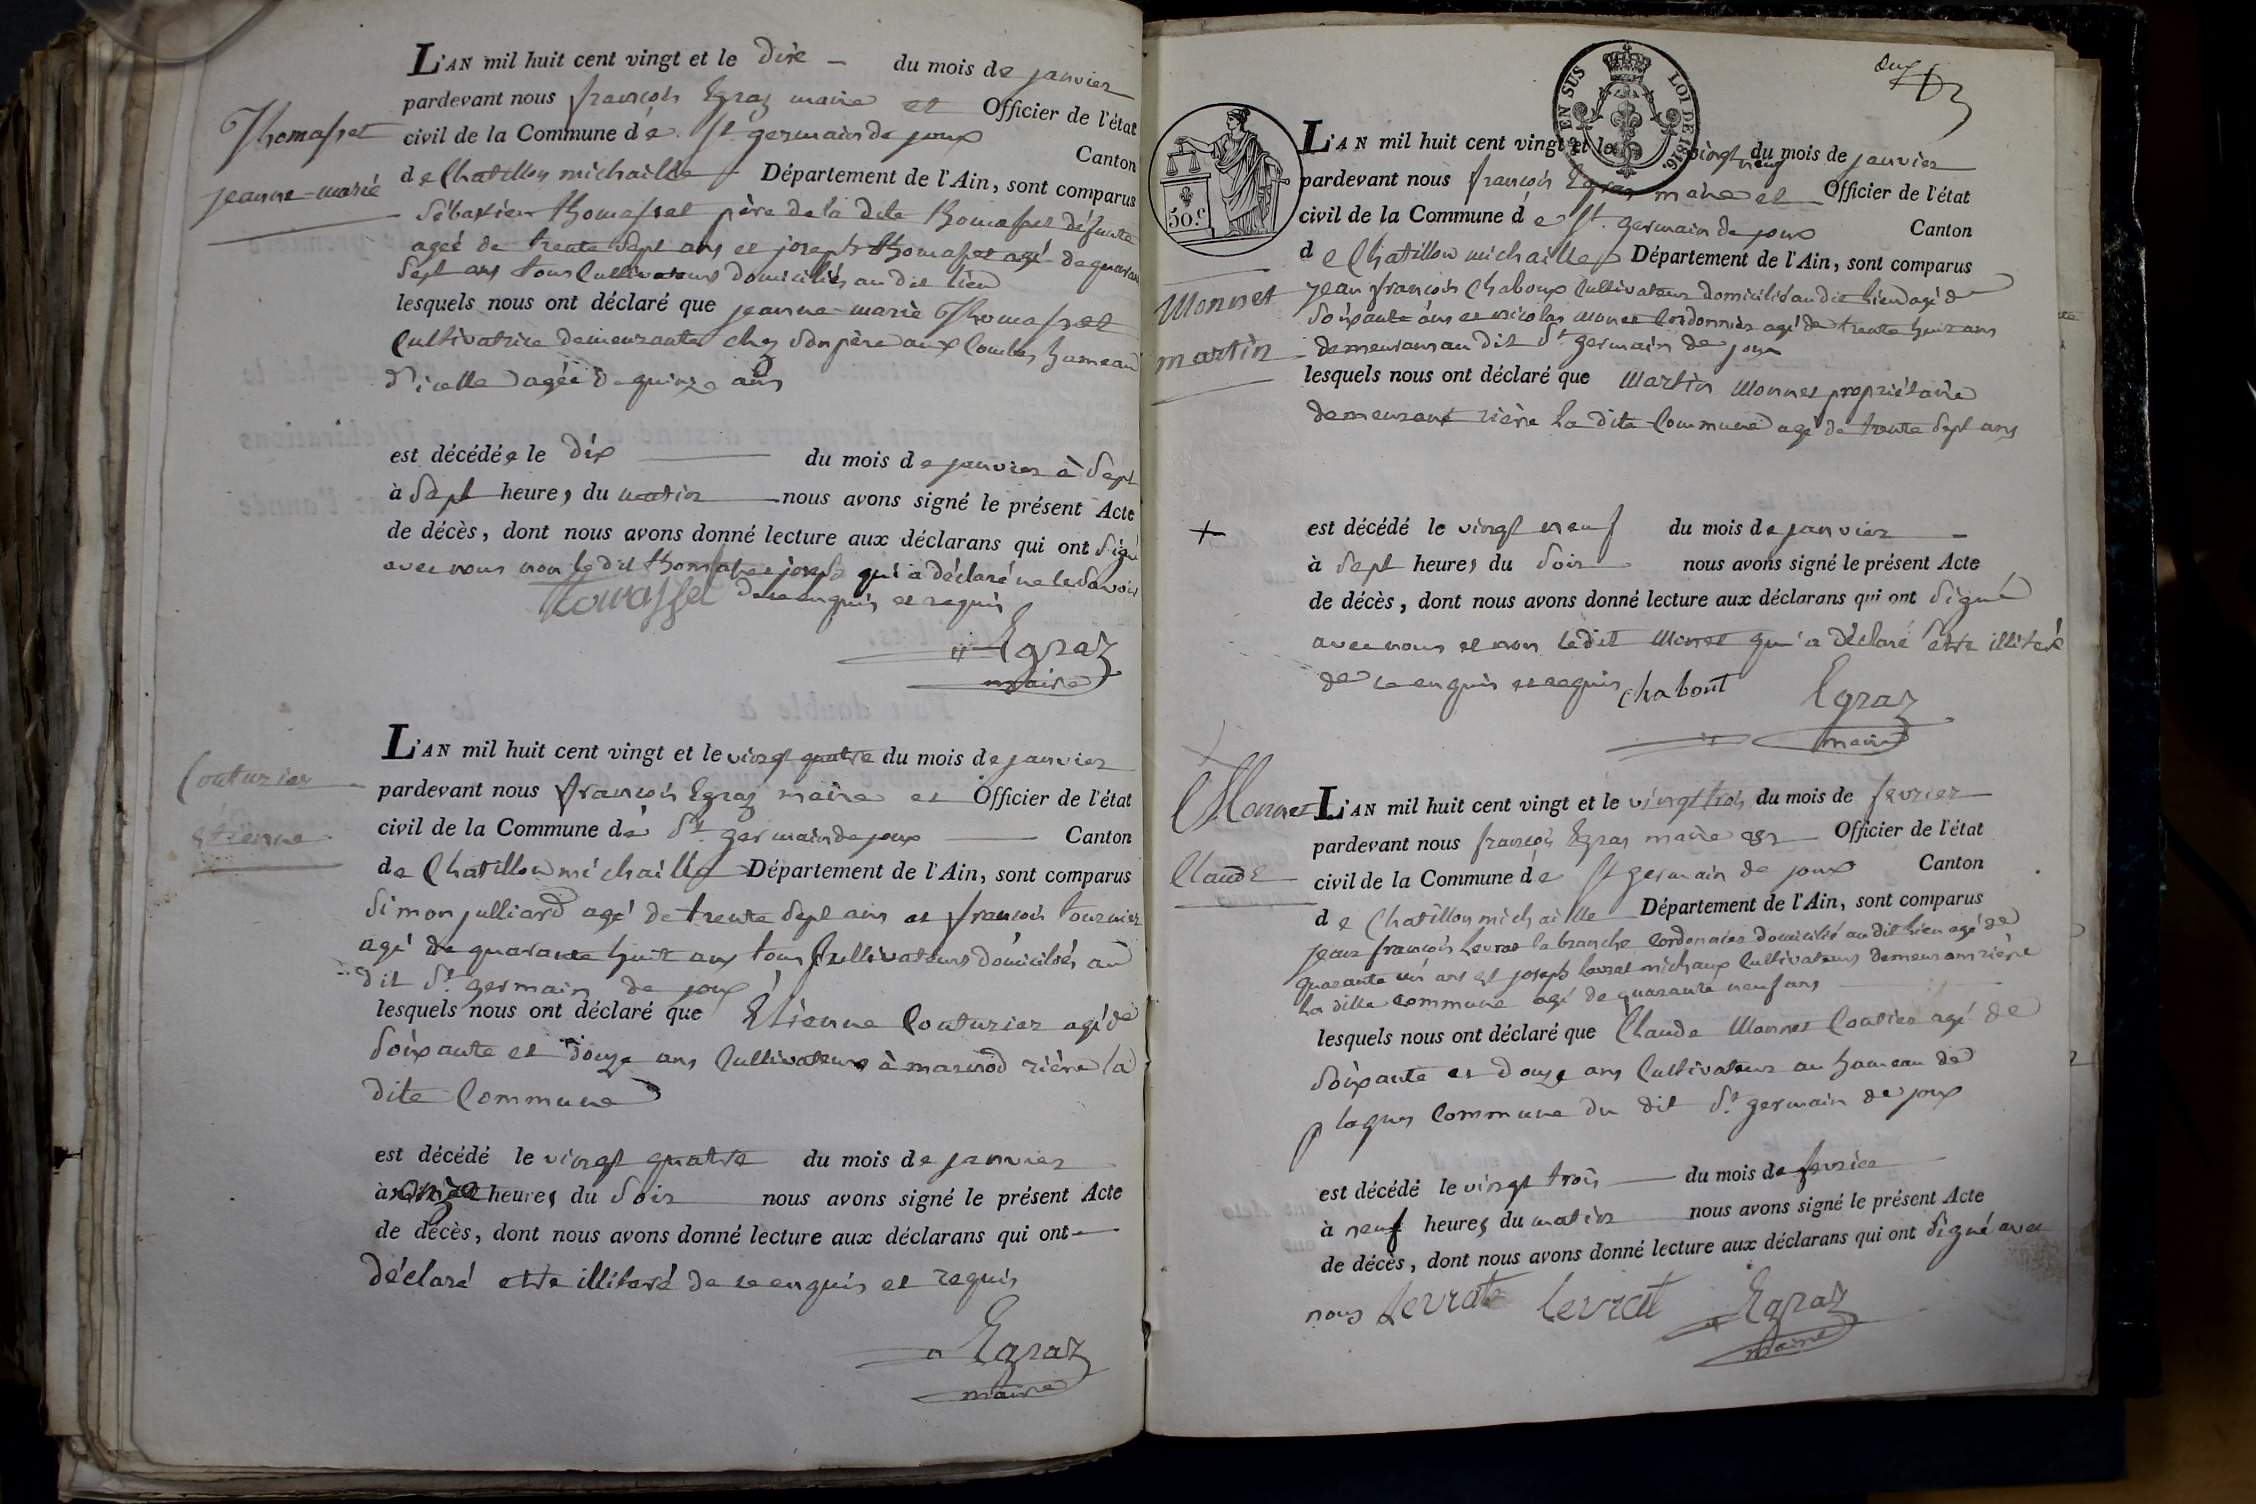 Thomasset
jeanne-marie
L'AN mil huit cent vingt et le dixe du mois de janvier
pardevant nous françois Egraz maire et Officier de l'état
civil de la Commune de St germain de joux Canton
de Chatillon michaille Département de l'Ain, sont comparus
Sébastien thomasset père de la dite thomasset défunte
ageé de trente Sept ans et joseph thomasset agé de quarante
Sept ans tous Cultivateurs domiciliés au dit lieu
lesquels nous ont déclaré que jeanne-marie Thomasset
Cultivatrice demeurante chez Son père aux Combes hameau
d'icelle agée de quinze ans
est décédée le dix du mois de janvier à Sept
à Sept heures du matin nous avons signé le présent Acte
de décès, dont nous avons donné lecture aux déclarans qui ont Signé
avec nous non le dit thomasset joseph qui a déclaré ne le Savoir
Thomasset de ce enquis et requis
Egraz
maire
Couturier
etienne
L'AN mil huit cent vingt et le vingt quatre du mois de janvier
pardevant nous françois Egraz maire et Officier de l'état
civil de la Commune de St germain de joux Canton
de Chatillon michaille Département de l'Ain, sont comparus
Simon julliard agé de trente Sept ans et francois tournier
agé de quarante huit ans tous Cultivateurs domiciliés au
dit St germain de joux
lesquels nous ont déclaré que Etienne Couturier agé de
Soixante et douze ans Cultivateur à marnod rière la
dite Commune
est décédé le vingt quatre du mois de janvier
à onze heures du Soir nous avons signé le présent Acte
de décès, dont nous avons donné lecture aux déclarans qui ont
déclaré etre illiteré de ce enquis et requis
Egraz
maire
EN SUS LOI DE 1816.
50.c
Monnet
martin
L'AN mil huit cent vingt et le vingt neuf du mois de janvier
pardevant nous françois Egraz maire et Officier de l'état
civil de la Commune de St germain de joux Canton
de Chatillon michaille Département de l'Ain, sont comparus
jean françois Chaboux Cultivateur domicilié au dit lieu agé de
Soixante ans et nicolas monet Cordonnier agé de trente huit ans
demeurans au dit St germain de joux
lesquels nous ont déclaré que Martin Monnet propriétaire
demeurant rière la dite Commune agé de trente Sept ans
+
est décédé le vingt neuf du mois de janvier
à Sept heures du Soir nous avons signé le présent Acte
de décès, dont nous avons donné lecture aux déclarans qui ont Signé
avec nous et non le dit Monet qui a déclaré être illiteré
de ce enquis et requis chabout Egraz
maire
Monnet
Claude
L'AN mil huit cent vingt et le vingt trois du mois de fevrier
pardevant nous françois Egraz maire et Officier de l'état
civil de la Commune de St germain de joux Canton
de Chatillon michaille Département de l'Ain, sont comparus
jean françois Levrat labranche Cordonnier domicilié au dit lieu agé de
quarante un ans et joseph levrat michaux Cultivateur demeurans rière
la ditte Commune agé de quarante neuf ans
lesquels nous ont déclaré que Claude Monnet Coutier agé de
Soixante et Douze ans Cultivateur au hameau de
plagnes Commune du dit St germain de joux
est décédé le vingt trois du mois de fevrier
à neuf heures du matin nous avons signé le présent Acte
de décès, dont nous avons donné lecture aux déclarans qui ont Signé avec
nous Levrat levrat Egraz
maire